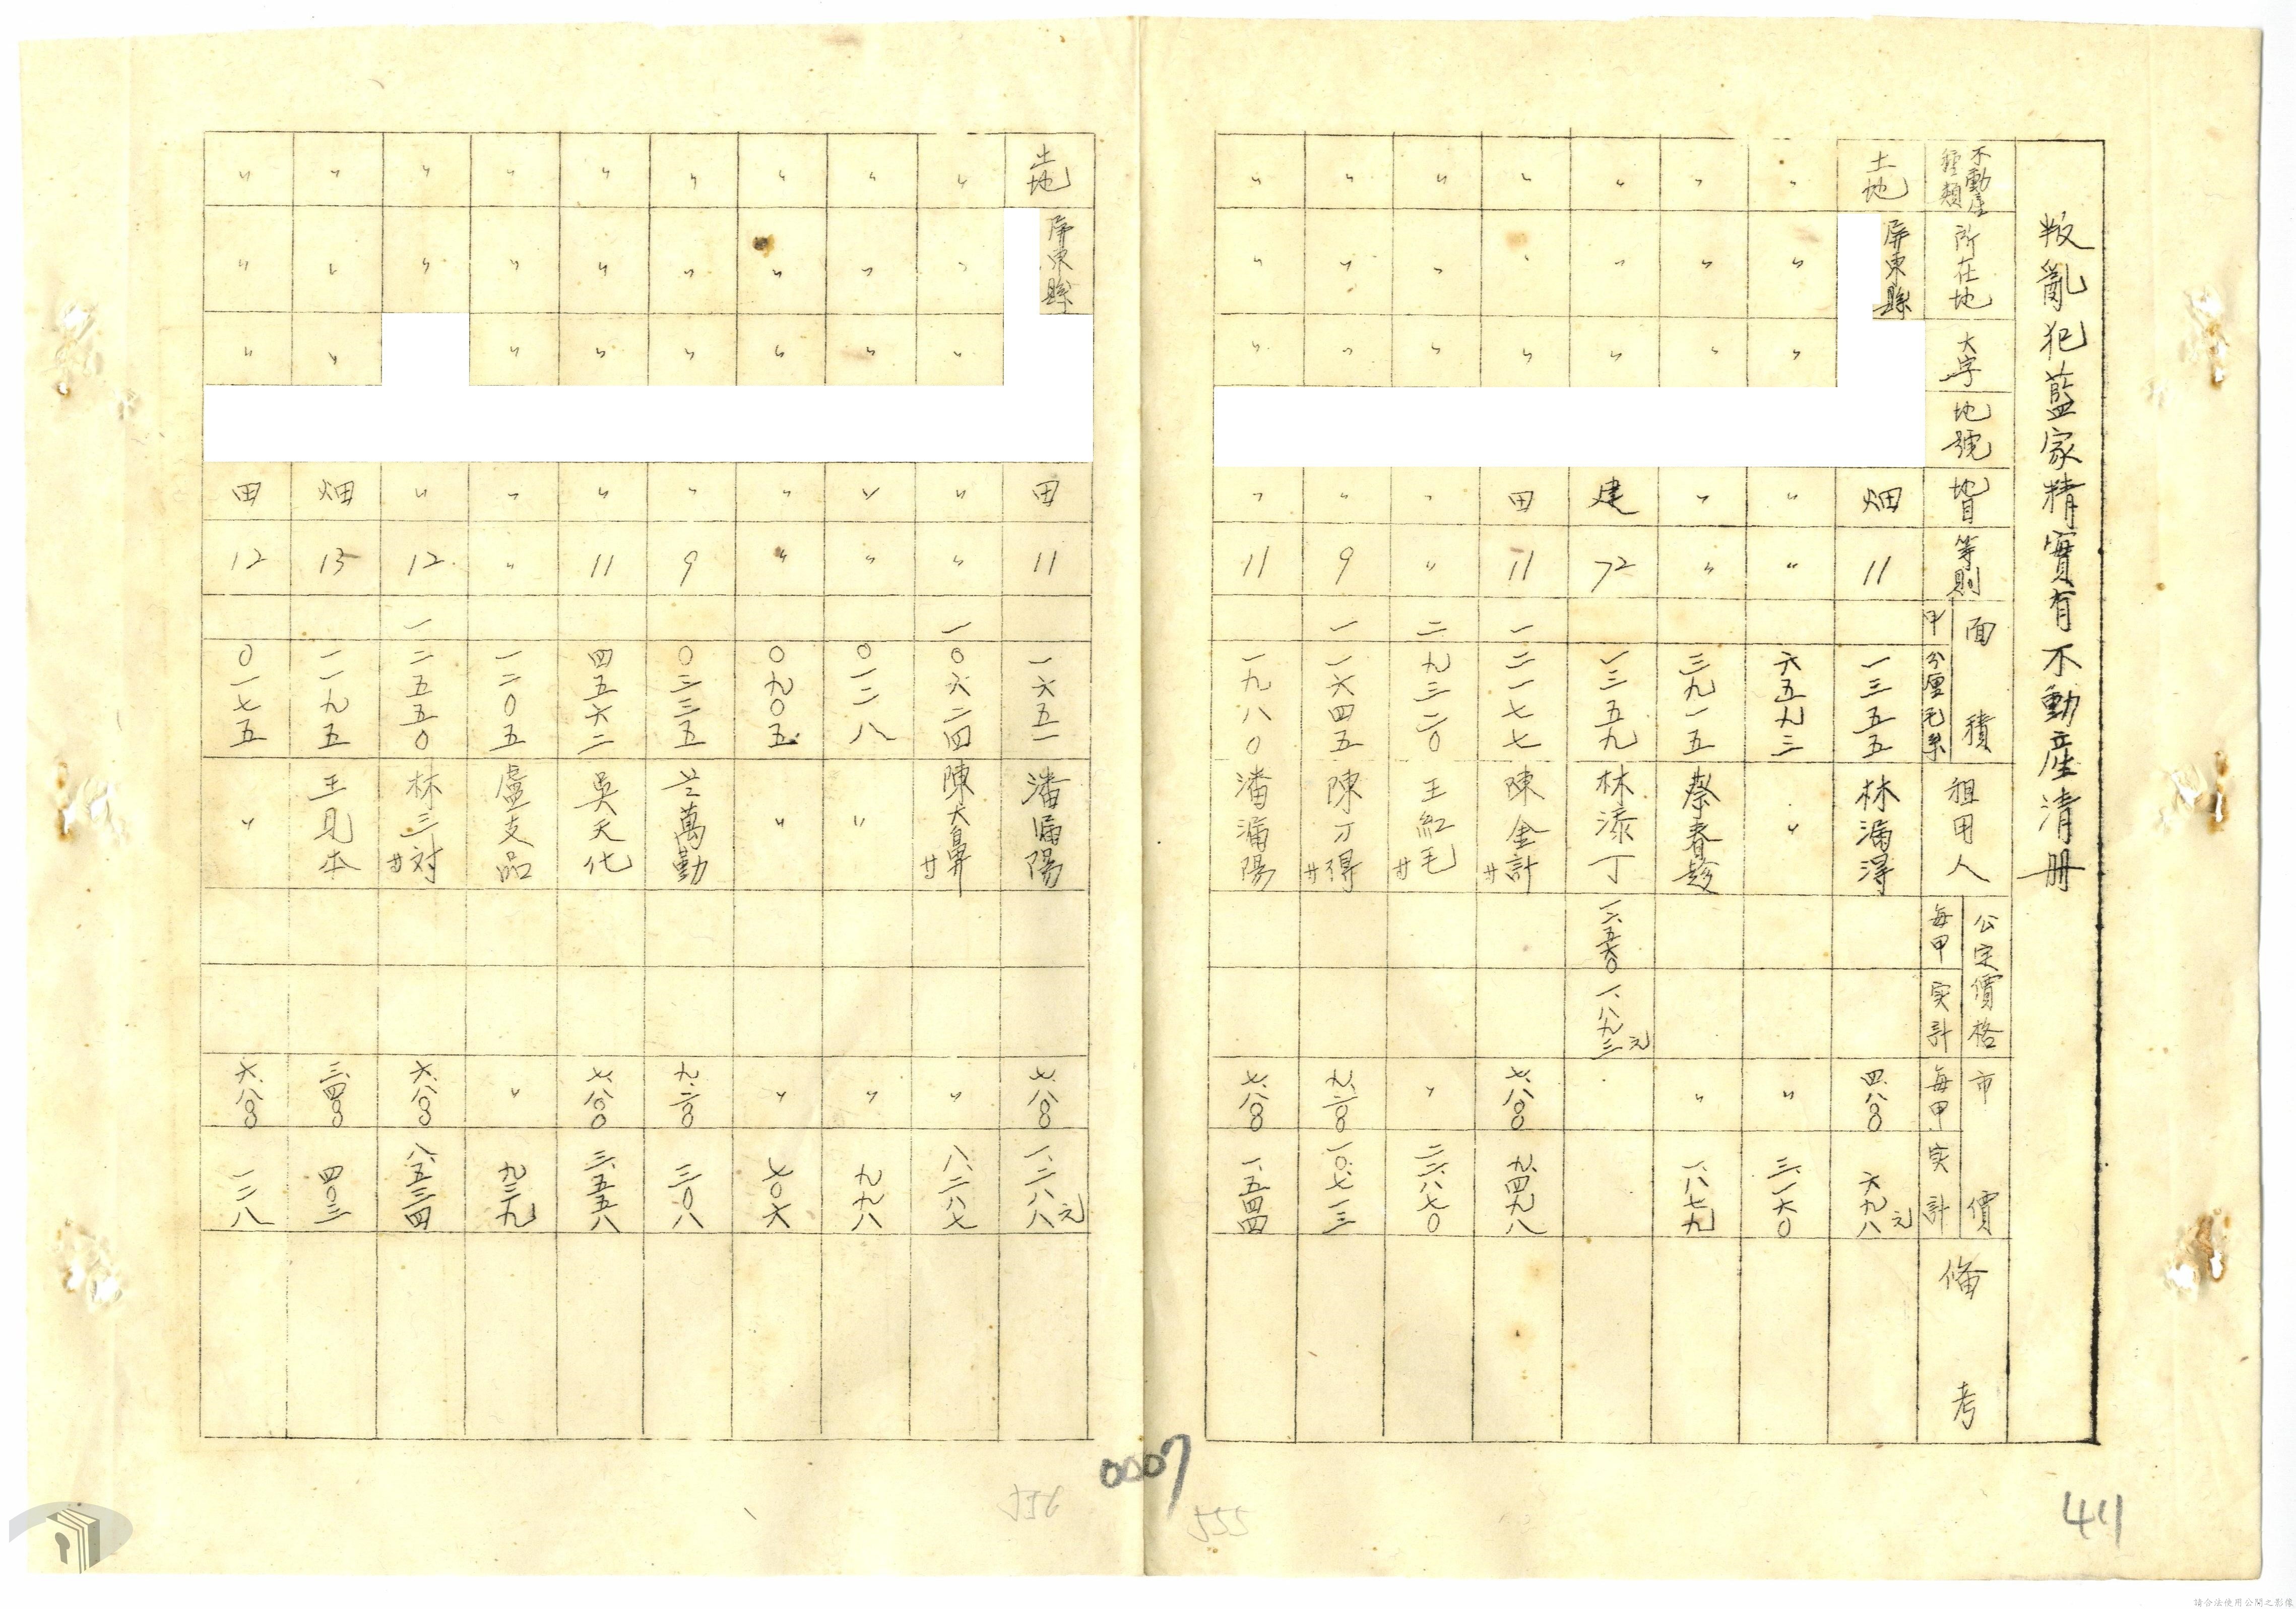 叛亂犯藍家精實有不動產清册
不動產種類 所在地 大字 地號 地目 等則 面積 甲 分厘毛糸 租用人 公定價格 每甲 実計 市價 每甲 実計 俻考
土地 屏東縣 畑 11 一三五五 林漏淂 四.八〇〇 六九八元
〃 〃 〃 〃 〃 六五九三 〃 〃 三.一六〇
〃 〃 〃 〃 〃 三九一五 蔡春 〃 一.八七九
〃 〃 〃 建 72 一三五九 林添丁 一八九三元
〃 〃 〃 田 11 一 二一七七 陳金計 廿 七.八〇〇 九.四九八
〃 〃 〃 〃 〃 二 九三二〇 王紅毛 廿 〃 二二.八七〇
〃 〃 〃 〃 9 一 一六四五 陳刀得 廿 九.二〇〇 一〇.七一三
〃 〃 〃 〃 11 一九八〇 潘漏陽 七.八〇〇 一.五四四
土地 屏東縣 田 11 一六五一 潘漏陽 七.八〇〇 一.二八八元
〃 〃 〃 〃 〃 一 〇六二四 陳大鼻 廿 〃 八.二八七
〃 〃 〃 〃 〃 〇一二八 〃 〃 九九八
〃 〃 〃 〃 〃 〇九〇五 〃 〃 七〇六
〃 〃 〃 〃 9 〇三三五 萬勤 九.二〇〇 三〇八
〃 〃 〃 〃 11 四五六二 吳天化 七.八〇〇 三.五五八
〃 〃 〃 〃 〃 一二〇五 盧支品 〃 九三九
〃 〃 〃 12 一 二五五〇 林三対 廿 六.八〇〇 八.五三四
〃 〃 〃 畑 15 一一九五 王見本 三.四〇〇 四〇三
〃 〃 〃 田 12 〇一七五 〃 六.八〇〇 一二八
0007
555
556
441
請合法使用公開之影像